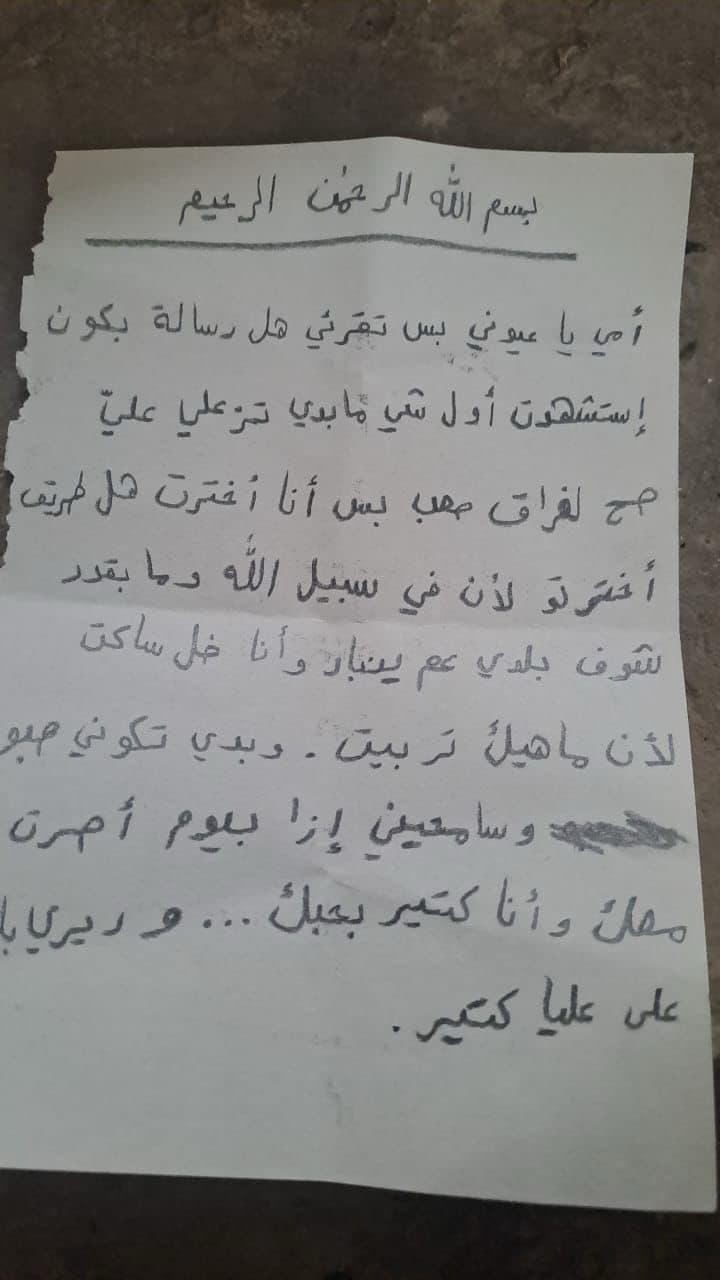 بسم الله الرحمٰن الرحيم
أمي يا عيوني بس تقرئي هل رسالة بكون
إستشهدت أول شي مابدي تزعلي عليّ
صح لفراق صعب بس أنا أخترت هل طريق
أخترتو لأن في سبيل الله وما بقدر
شوف بلدي عم ينباد وأنا ضل ساكت
لأن ما هيك تربيت. وبدي تكوني صبو
وسامحيني إزا بيوم أصرت
معك وأنا كتير بحبك ... و ديري با
على عليا كتير.